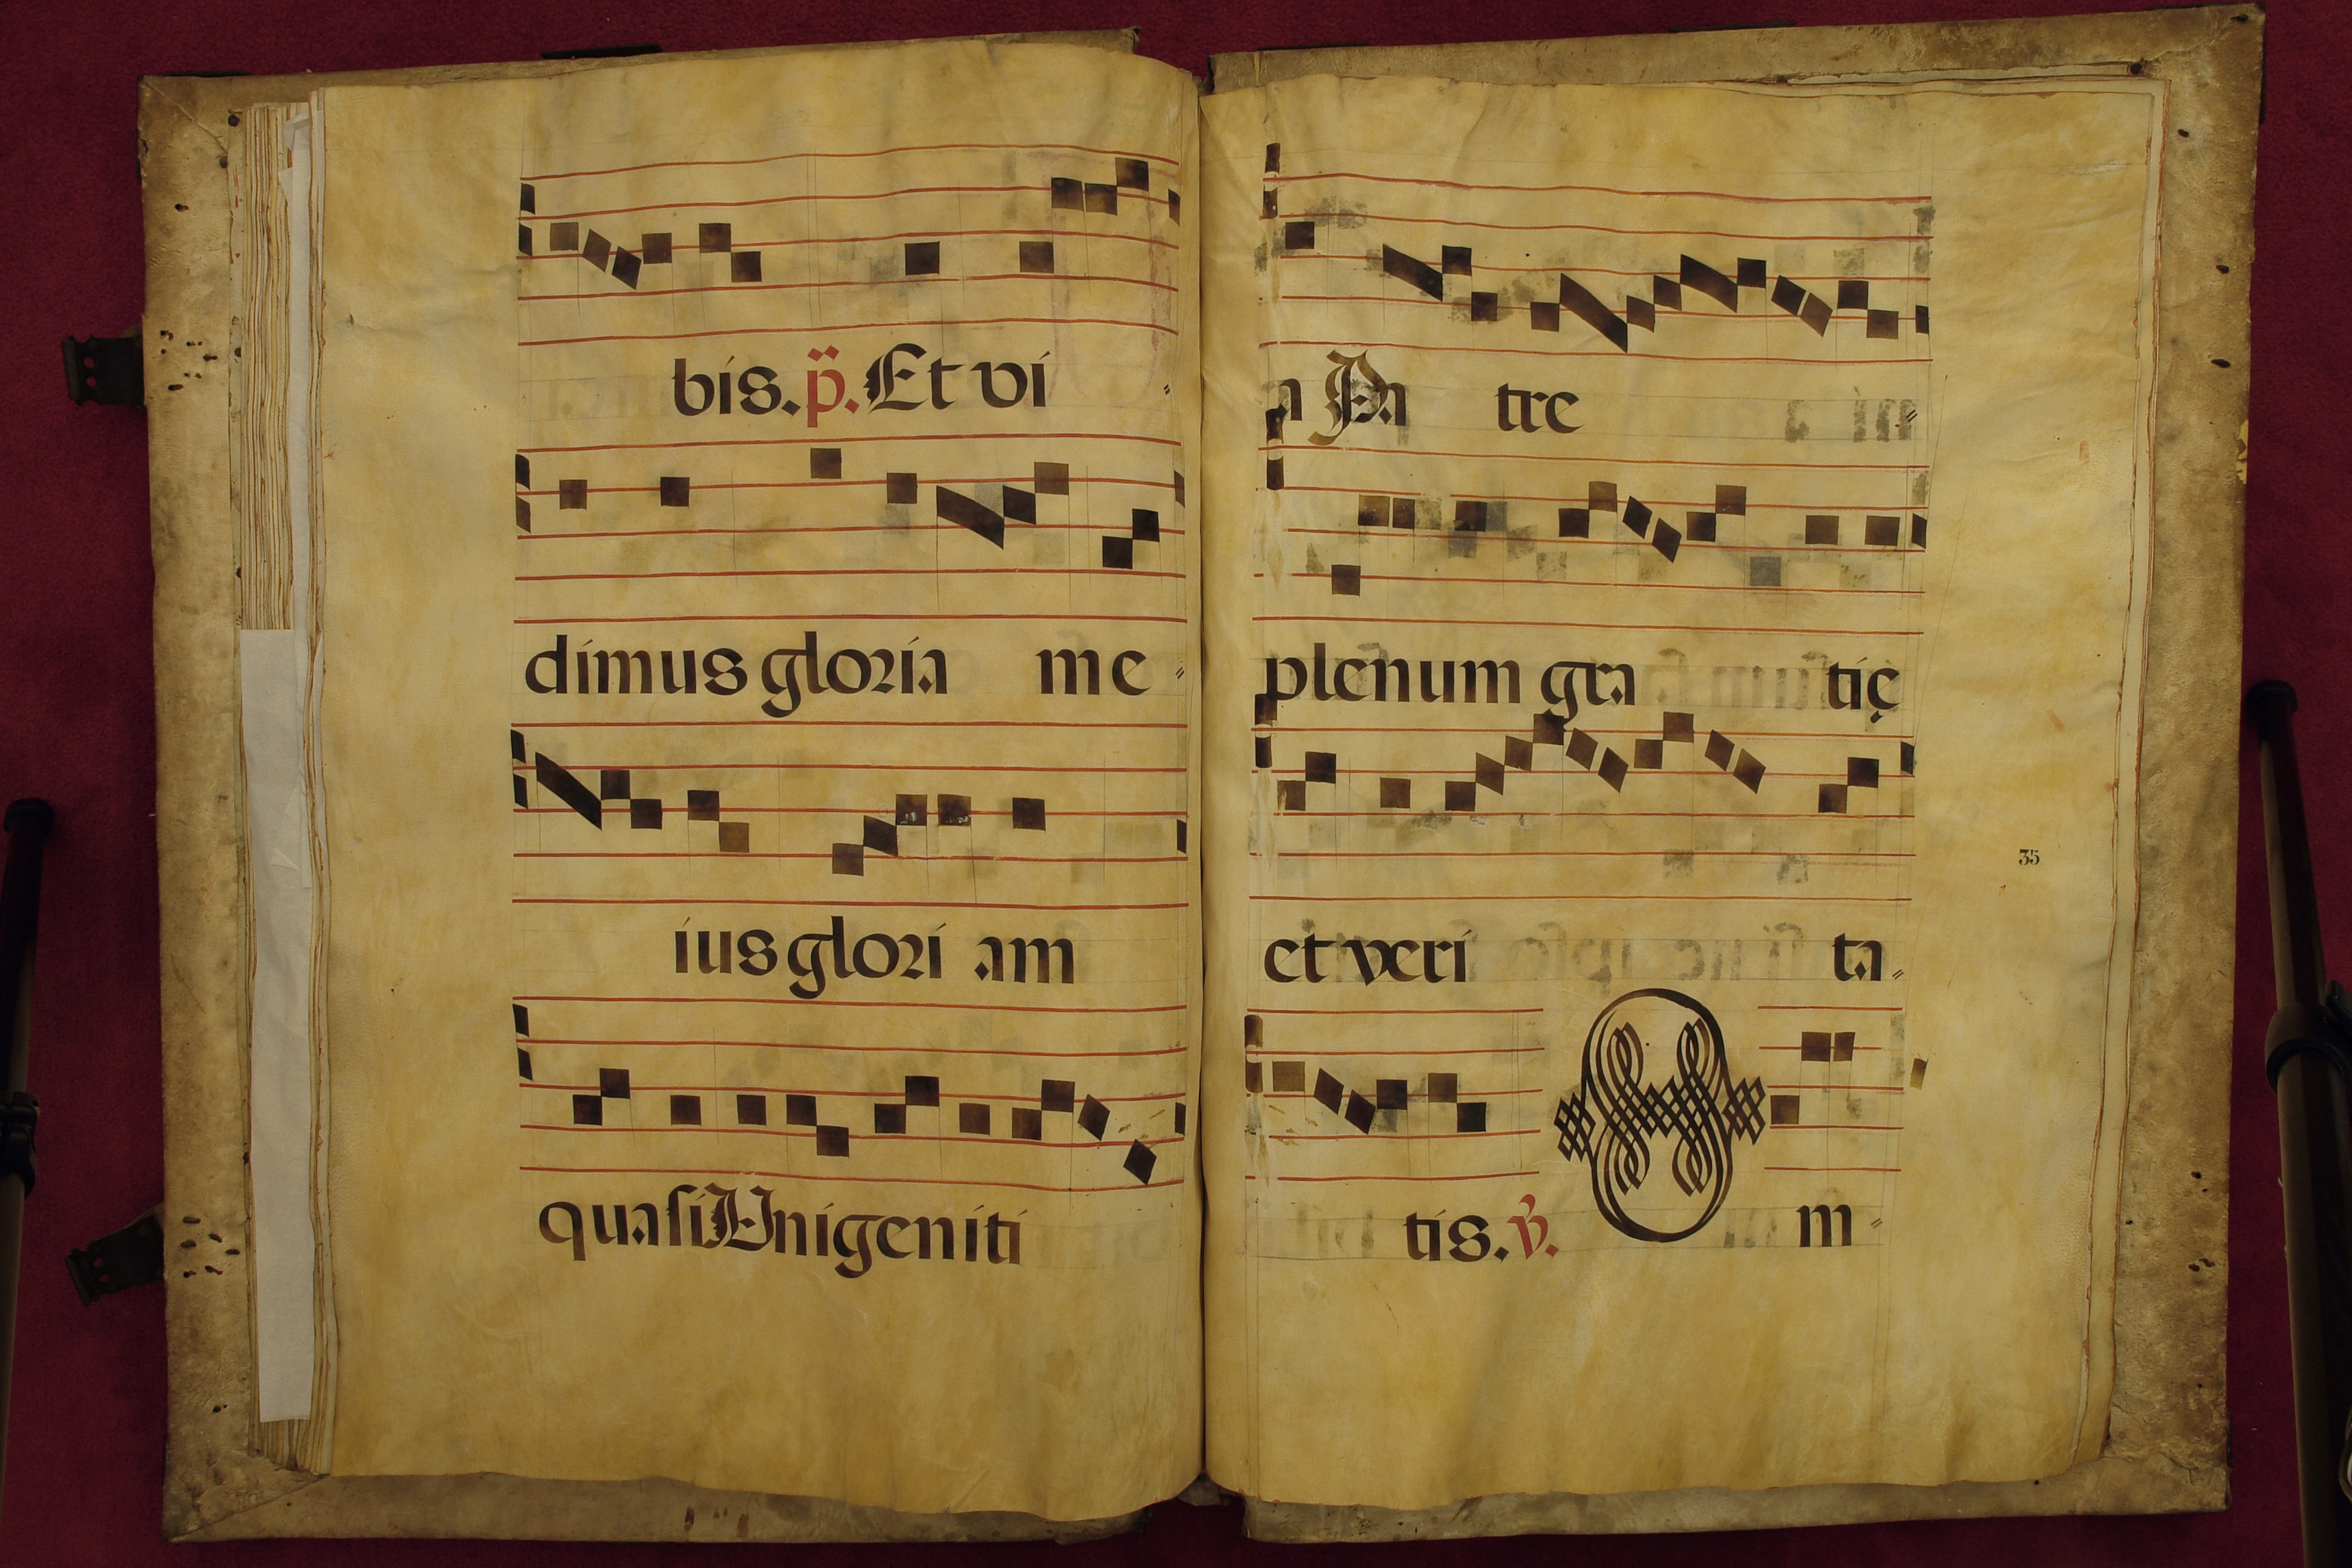 bis. p̈. Et vi
dimus gloria me
ius glori am
quasi Unigeniti
a Pa tre
plenum gra tię
et veri ta
35
tis. v. O m